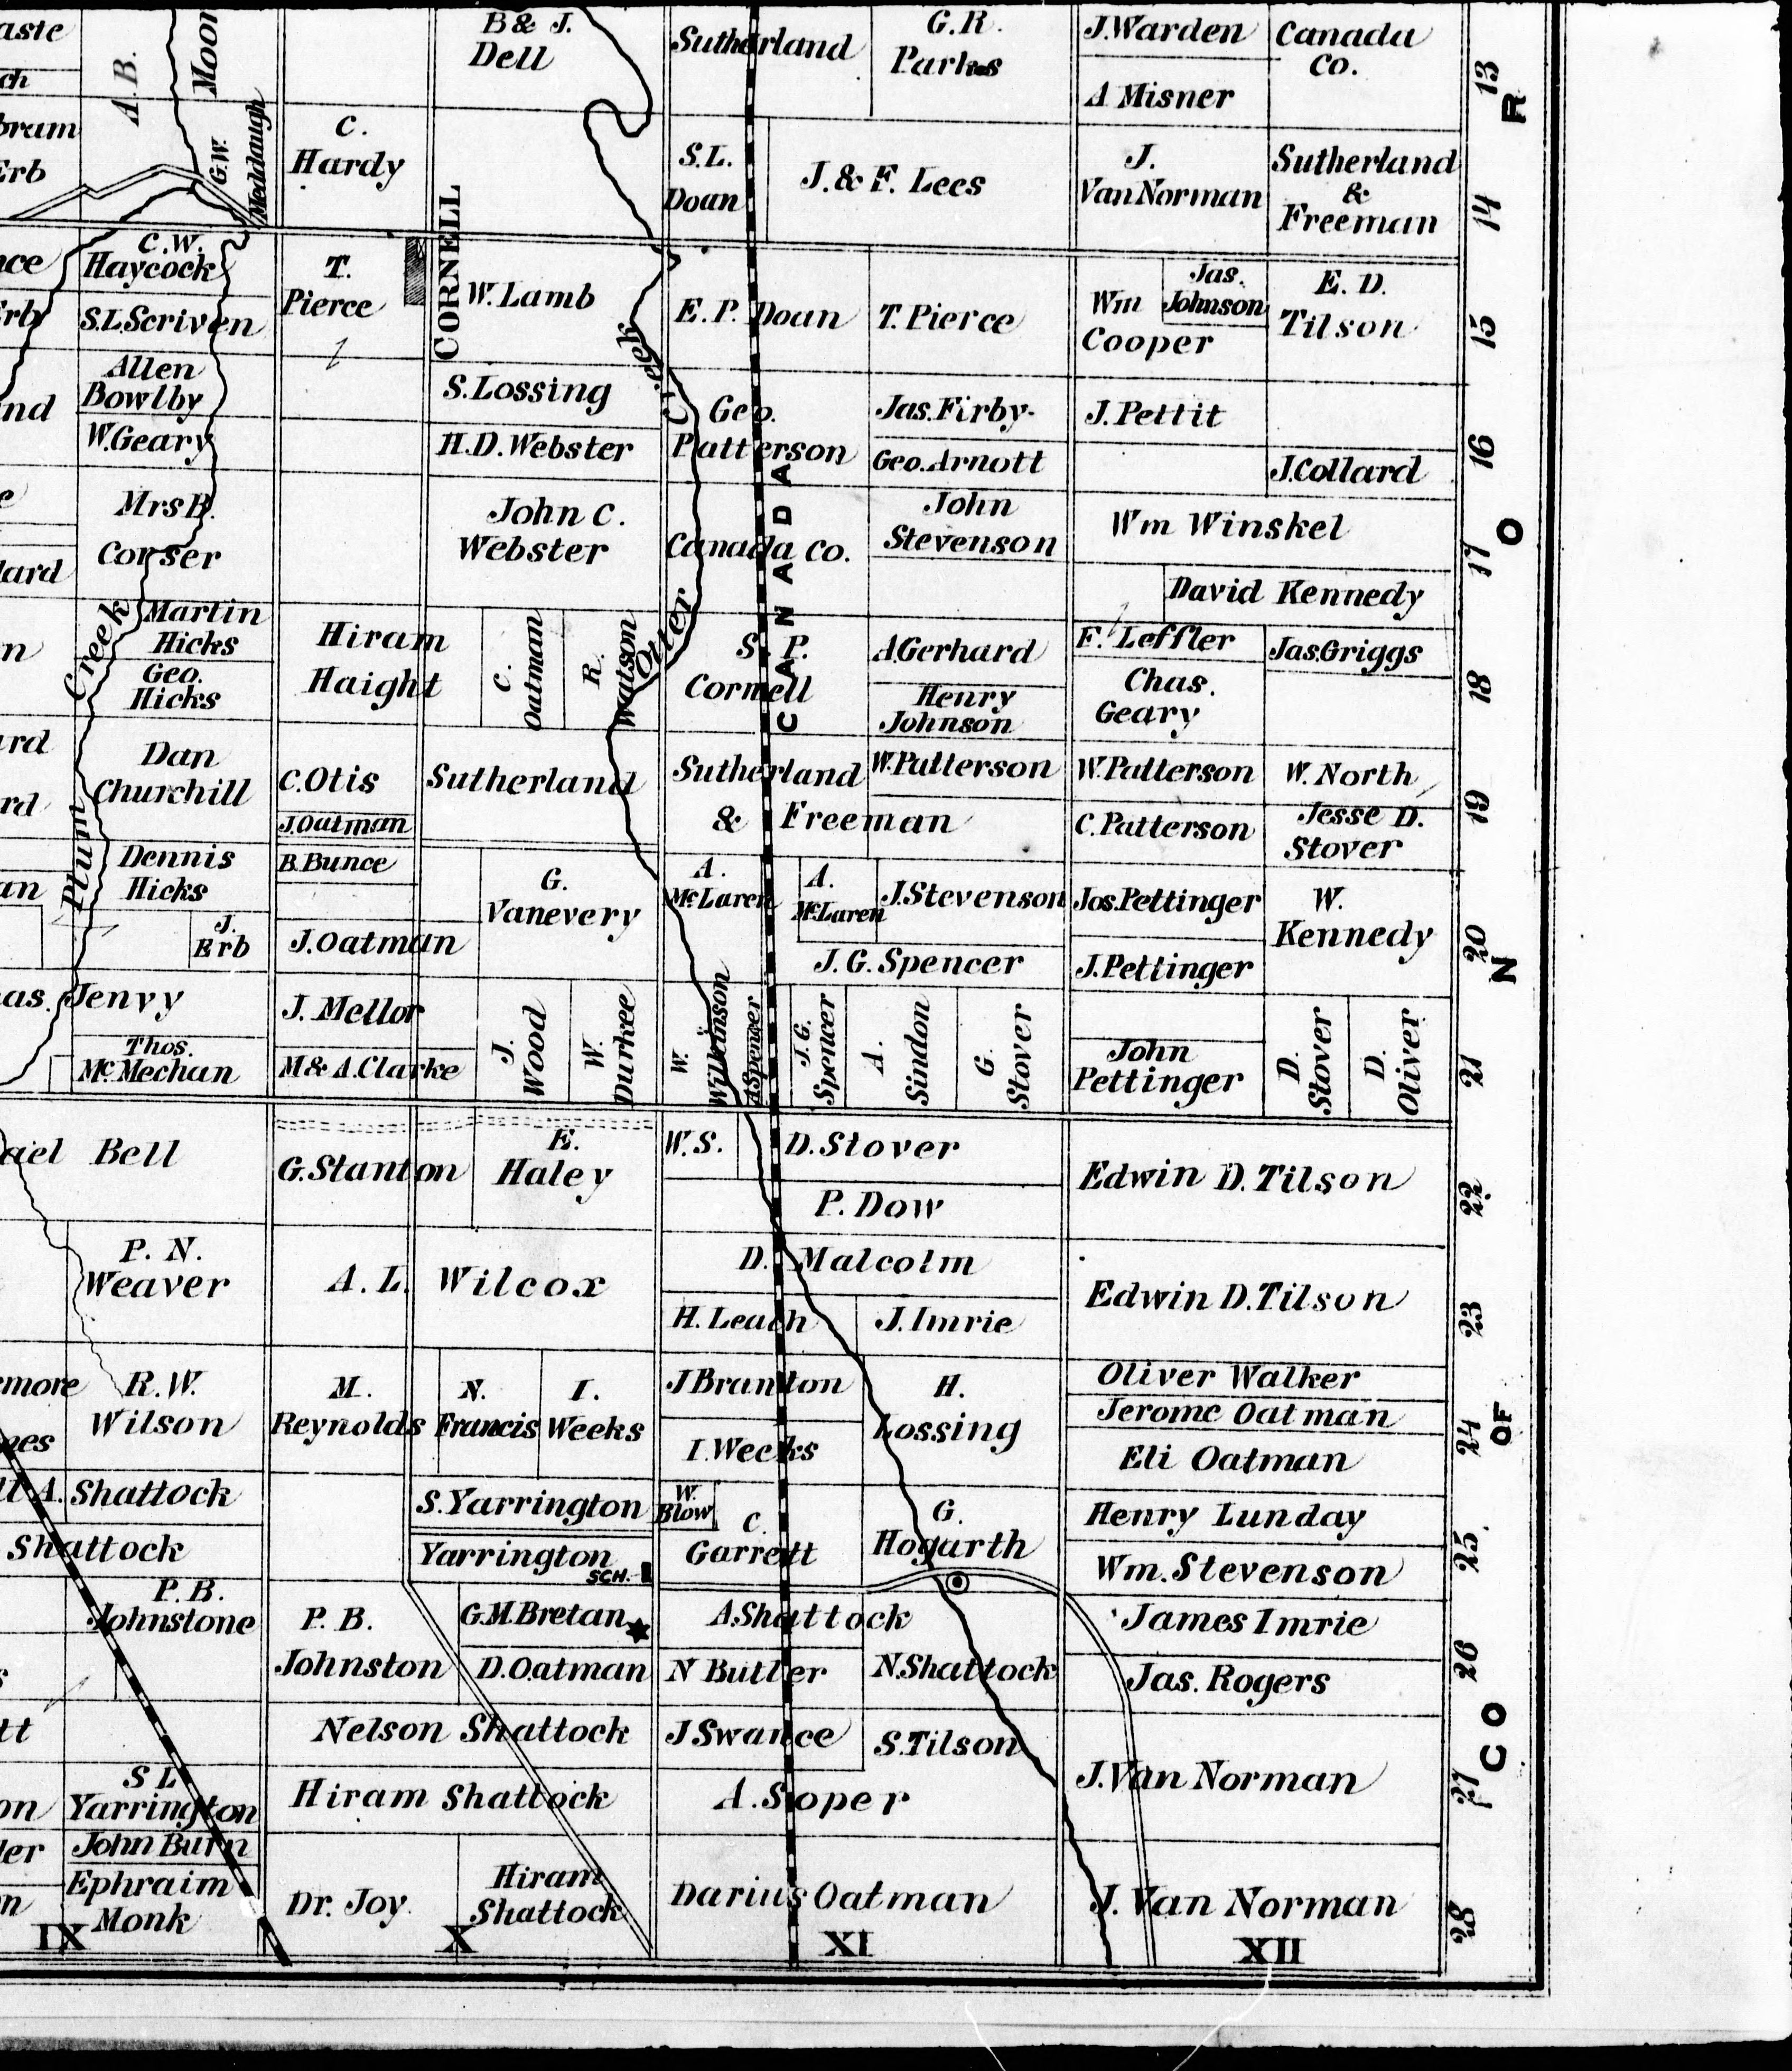 aste
ch
bram
Erb
A.B.
Moor
G.W.
Meddaugh
C.
Hardy
B & J.
Dell
Sutherland
G.R.
Parks
J.Warden
Canada
Co.
A Misner
13
R
S.L.
Doan
J. & F. Lees
J.
VanNorman
Sutherland
&
Freeman
14
nce
C.W.
Haycock
Erb
S.L.Scriven
T.
Pierce
CORNELL
W. Lamb
E. P. Doan
T. Pierce
Wm
Cooper
Jas.
Johnson
E. D.
Tilson
15
Allen
Bowlby
W.Geary
and
S.Lossing
H.D.Webster
Creek
Geo.
Patterson
Jas.Firby.
Geo.Arnott
J.Pettit
J.Collard
16
e
Mrs B.
Conser
lard
John C.
Webster
Canada Co.
CANADA
John
Stevenson
Wm Winskel
David Kennedy
17
O
n
Creek
Martin
Hicks
Geo.
Hicks
Hiram
Haight
C.
Oatman
R.
Watson
Otter
S. P.
Cornell
A.Gerhard
Henry
Johnson
F. Leffler
Chas.
Geary
Jas.Griggs
18
ard
rd
Dan
Churchill
C.Otis
J.Oatman
Sutherland
Sutherland
& Freeman
W.Patterson
W.Patterson
C.Patterson
W. North
Jesse D.
Stover
19
Plum
an
Dennis
Hicks
J.
Erb
B.Bunce
J.Oatman
G.
Vanevery
A.
McLaren
A.
McLaren
J.Stevenson
J.G.Spencer
Jos.Pettinger
J.Pettinger
W.
Kennedy
20
N
as. Jenvy
Thos.
McMechan
J. Mellor
M & A.Clarke
J.
Wood
W.
Durkee
W.
Wilkinson
A.Spencer
J.G.
Spencer
A.
Sindon
G.
Stover
John
Pettinger
D.
Stover
D.
Oliver
21
ael Bell
G.Stanton
E.
Haley
W.S.
D.Stover
P. Dow
Edwin D.Tilson
22
P. N.
Weaver
A. L. Wilcox
D. Malcolm
H. Leach
J.Imrie
Edwin D.Tilson
23
more
nes
R.W.
Wilson
M.
Reynolds
N.
Francis
I.
Weeks
J Branton
I.Weeks
H.
Lossing
Oliver Walker
Jerome Oatman
Eli Oatman
24
OF
A. Shattock
Shattock
S.Yarrington
Yarrington
SCH.
W.
Blow
C.
Garrett
G.
Hogarth
Henry Lunday
Wm.Stevenson
25
P.B.
Johnstone
s
P. B.
Johnston
G.M.Bretan
D.Oatman
A.Shattock
N Butler
N.Shattock
James Imrie
Jas. Rogers
26
CO
tt
Nelson Shattock
J Swance
S.Tilson
on
S L
Yarrington
Hiram Shattock
A. Soper
J.Van Norman
27
ler
John Burn
n
Ephraim
Monk
Dr. Joy.
Hiram
Shattock
Darius Oatman
J. Van Norman
28
IX
X
XI
XII